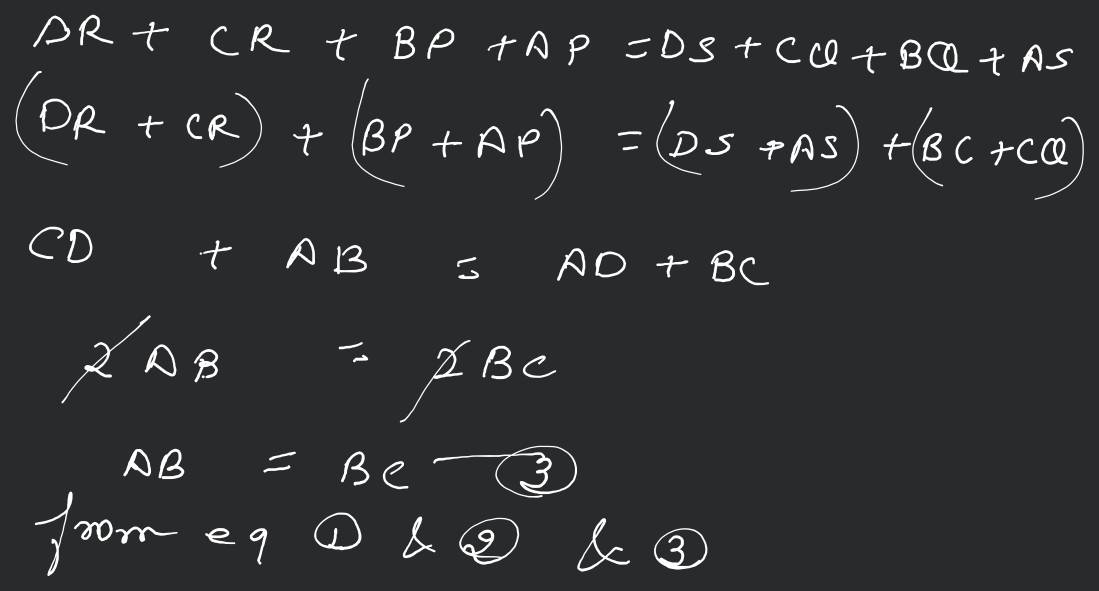 DR + CR + BP + AP = DS + CQ + BQ + AS
(DR + CR) + (BP + AP) = (DS + AS) + (BC + CQ)
CD + AB = AD + BC
2AB = 2BC
AB = BC — ③
from eq ① & ② & ③